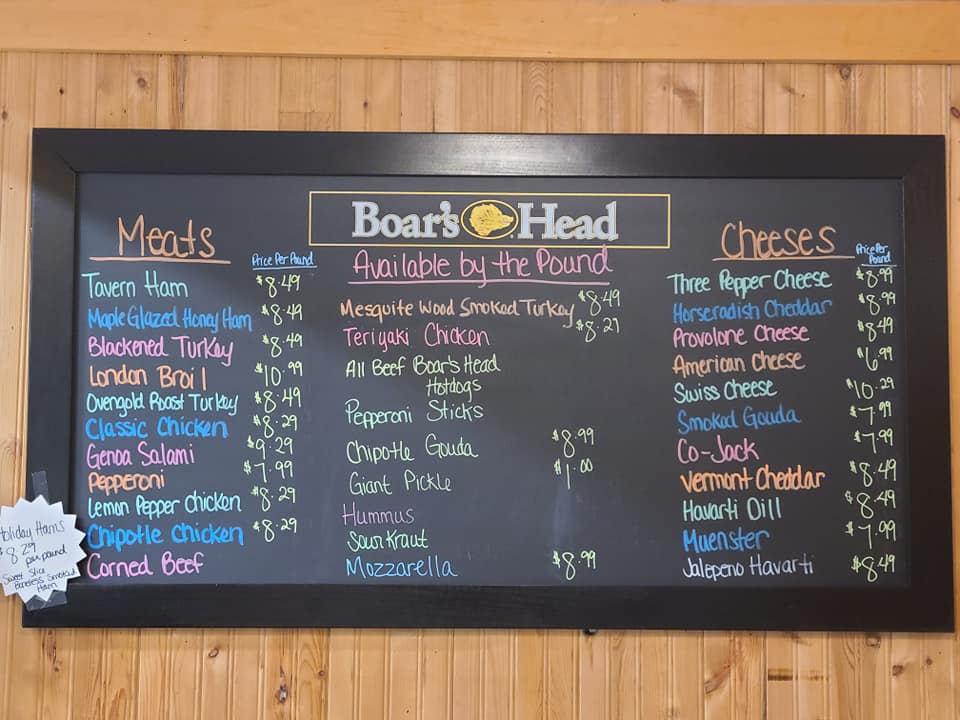 Boar's Head
Available by the Pound
Meats
Price Per Pound
Tavern Ham $8.49
Maple Glazed Honey Ham $8.49
Blackened Turkey $8.49
London Broil $10.99
Ovengold Roast Turkey $8.49
Classic Chicken $8.29
Genoa Salami $9.29
Pepperoni $7.99
Lemon Pepper Chicken $8.29
Chipotle Chicken $8.29
Corned Beef
Mesquite Wood Smoked Turkey $8.49
Teriyaki Chicken $8.29
All Beef Boar's Head
Hotdogs
Pepperoni Sticks
Chipotle Gouda $8.99
Giant Pickle $1.00
Hummus
Sour Kraut
Mozzarella $8.99
Cheeses
Price Per
Pound
Three Pepper Cheese $8.99
Horseradish Cheddar $8.99
Provolone Cheese $8.49
American Cheese $6.99
Swiss Cheese $10.29
Smoked Gouda $7.99
Co-Jack $7.99
Vermont Cheddar $8.49
Havarti Dill $8.49
Muenster $7.99
Jalepeno Havarti $8.49
Holiday Hams
$8.29
per pound
Sweet Slice
Boneless Smoked
Ham